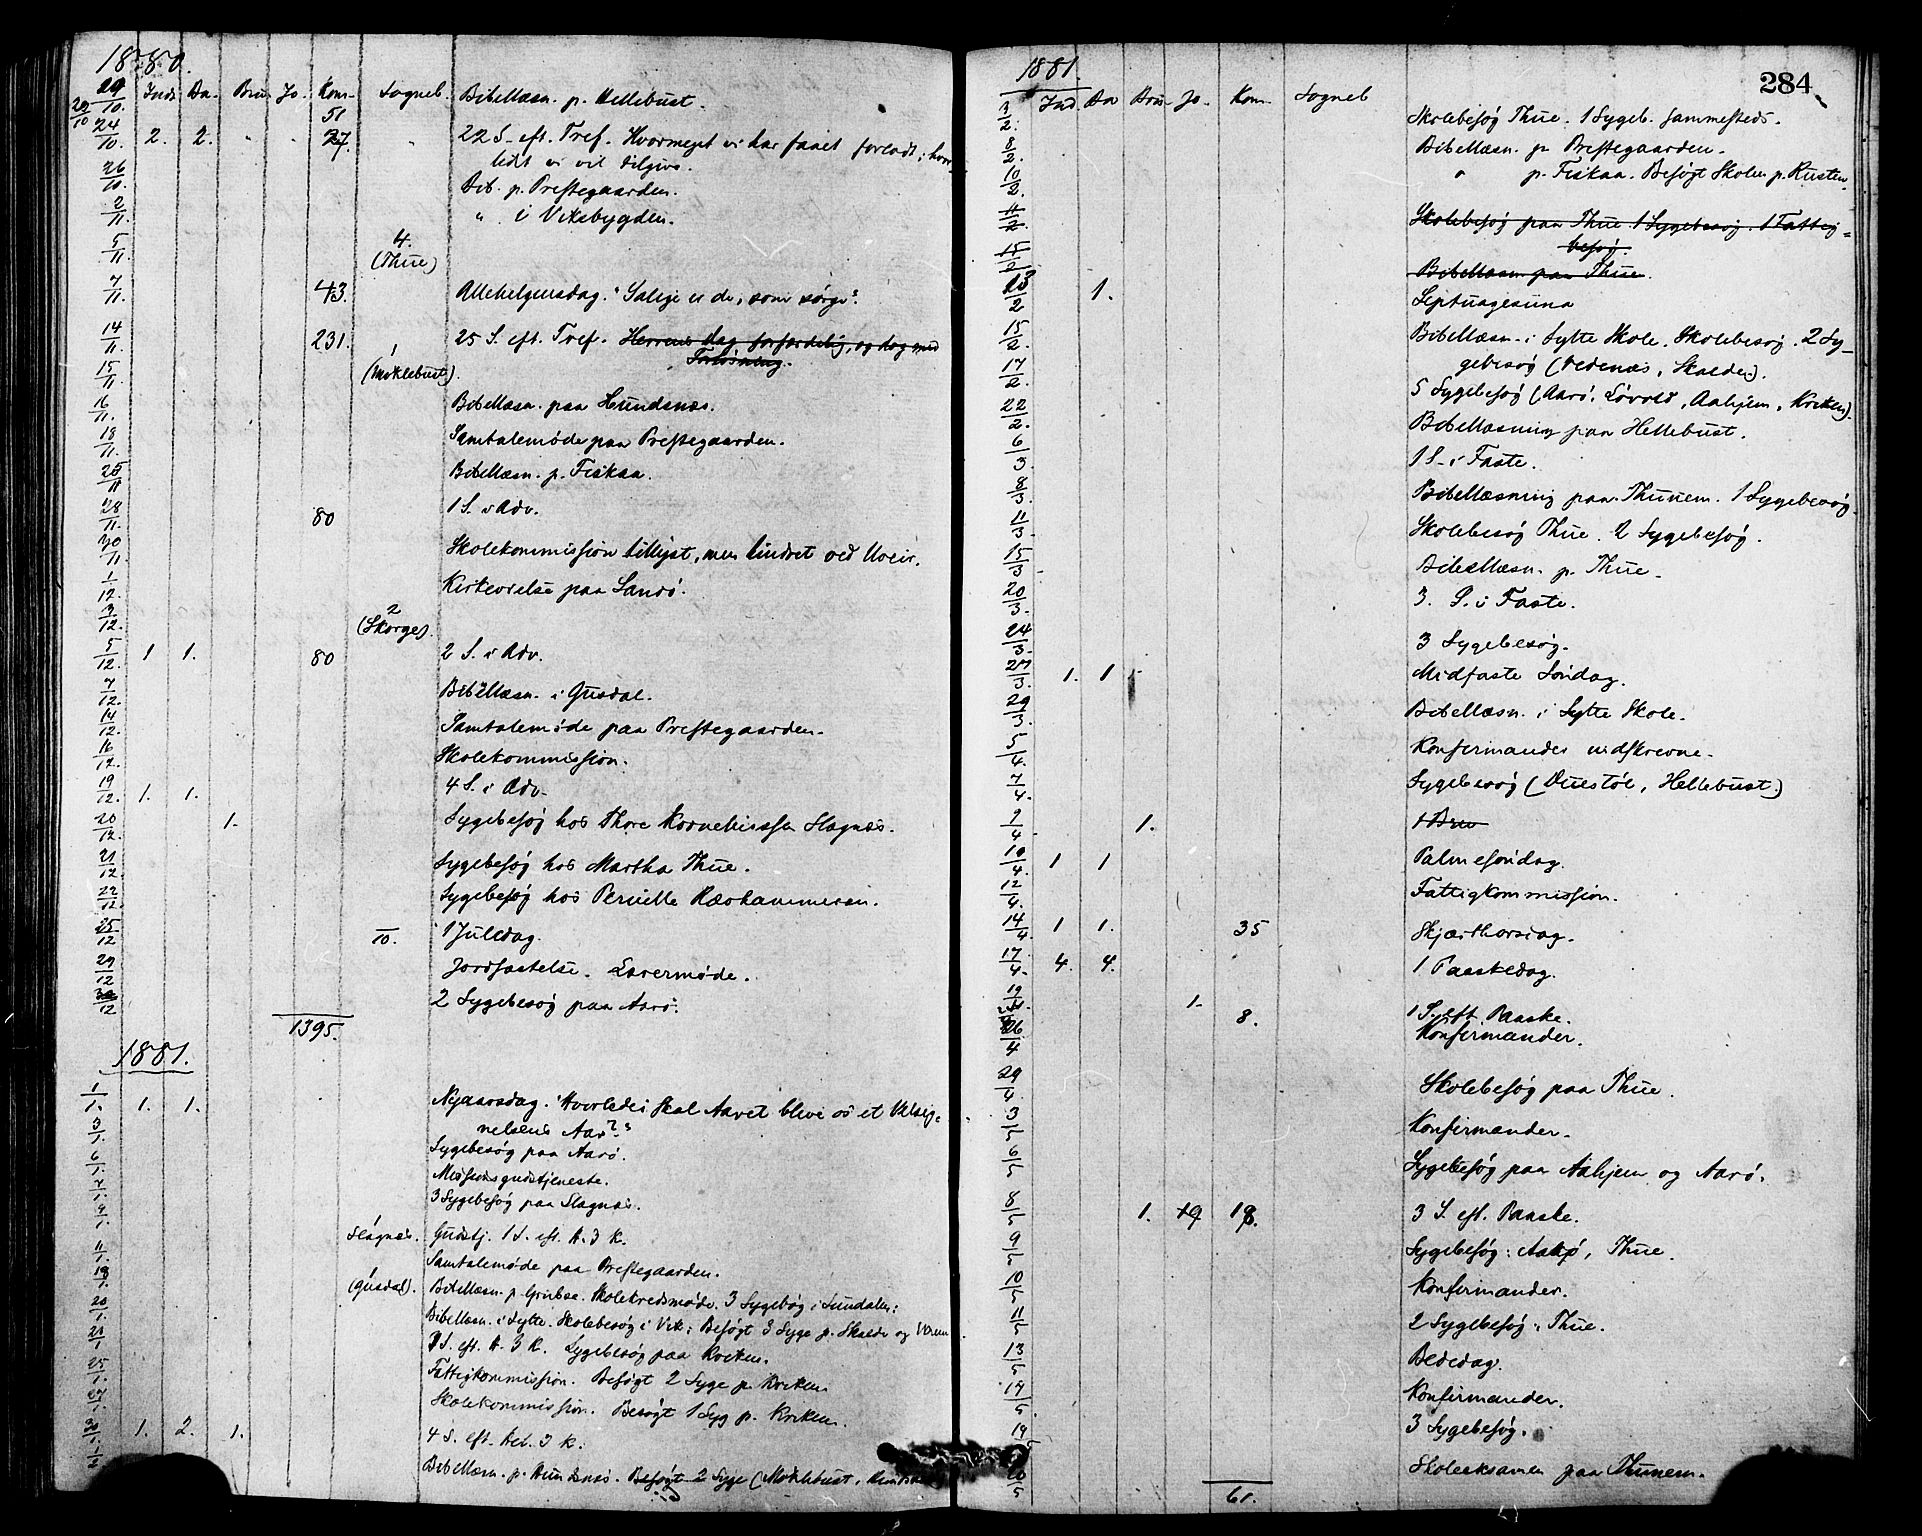 1880.
29/10. Inds Da. Brus Jo. Kom- Sogneb. Bibellæsn. p. Hellebust.
51
24/10. 2. 2. " " 27. " 22 S. eft. Tref. Hvormeget vi har faaet forladt; hvor
lidt vi vil tilgive.
26/10. Bib. p. Prestegaarden.
2/11. " i Viksbygden.
5/11. 4. (Thue)
7/11. 43. Allehelgensdag. "Salige er de, som sørge".
14/11. 231. 25 S. eft. Tref. Herrens dag forfærdelig, og dog med
Forløsning.
15/11. 1 (Myklebust).
16/11. Bibellæsn. paa Hundsnæs.
18/11. Samtalemøde paa Prestegaarden.
25/11 Bibellæsn. p. Fiskaa.
28/11. 80 1 S. i Adv.
30/11. Skolekommission tillyst, men hindret ved Uveir.
1/12. Kirkevielse paa Sandø.
3/12. 2 (Skorge).
5/12. 1 1. 80 2 S. i Adv.
7/12. Bibellæsn. i Gusdal.
14/12. Samtalemøde paa Prestegaarden.
16/12. Skolekommission.
19/12. 1. 1. 4 S. i Adv.
20/12. 1. Sygebesøg hos Thore Korneliussen Slagnæs.
21/12. Sygebesøg hos Martha Thue.
22/12. Sygebesøg hos Pernille
25/12 10. 1 Juledag.
29/12 Jordfæstelse. Lærermøde.
30/12 2 Sygebesøg paa Aarø.
1395.
1881.
1/1. 1. 1. Nyaarsdag. "Hvorledes skal Aaret blive os et Velsig-
nelsens Aar?"
3/1. Sygebesøg paa Aarø.
6/1. Missionsgudstjeneste.
7/1. 3 Sygebesøg paa Slagnæs.
9/1. Slagnæs. Gudstj. 1 S. eft. H. 3 K.
11/1. Samtalemøde paa Prestegaarden.
18/1. (Gusdal). Bibellæsn. p. Grinbæ. Skolekredsmøde. 3 Sygebesøg i Sundalen.
20/1. Bibellæsn. i Sylte. Skolebesøg i Vik. Besøgt 3 Syge p. Skaldе og
21/1 S. eft. H. 3 K. Sygebesøg paa Kviken.
25/1. Fattigkommission. Besøgt 2 Syge p. Kviken
27/1. Skolekommission. Besøgt 1 Syg p. Kviken.
30/1. 1. 2. 1. 4 S. eft. Hel. 3 K.
Bibellæsn. p. Hundsnæs. Besøgt 2 Syge (Myklebust,
1881.
284
Ind Da Brus- Jo- Kom- Sogneb
3/2. Skolebesøg Thue. 1 Sygeb. sammesteds.
8/2. Bibellæsn. p. Prestegaarden.
10/2. " p. Fiskaa. Besøgt Skolen p. Rusten.
11/2. Skolebesøg paa Thue. 1 Sygebesøg. 1 Fattig-
besøg.
15/2 Bibellæsn. paa Thue.
13/2 1. Septuagesima
15/2. Bibellæsn. i Sylte Skole. Skolebesøg. 2 Sy-
gebesøg (Vedenæs, Skalden).
17/2. 5 Sygebesøg (Aarø, Løvold, Aahjem, Kviken).
22/2. Bibellæsning paa Hellebust.
6/3 1 S. i Faste.
8/3. Bibellæsning paa Thunem. 1 Sygebesøg.
11/3. Skolebesøg Thue. 2 Sygebesøg.
15/3 Bibellæsn. p. Thue.
20/3. 3. S. i Faste.
24/3. 3 Sygebesøg.
27/3. 1. 1 Midfaste Søndag.
29/3. Bibellæsn. i Sylte Skole.
5/4. Konfirmander indskrevne.
7/4. Sygebesøg (Duestøl, Hellebust.)
9/4 1. 1 Brv
10/4. 1 1 Palmesøndag.
12/4. Fattigkommission.
14/4. 1 1. 35 Skjærthorsdag.
17/4. 4. 4. 1 Paaskedag.
19/4. 1.
8. 1 S. eft Paaske.
26/4 Konfirmander.
29/4. Skolebesøg paa Thue.
3/5 Konfirmander.
6/5 Sygebesøg paa Aahjem og Aarø.
8/5 1. 19 18. 3 S. eft. Paaske.
9/5 Sygebesøg: Thue.
10/5 Konfirmander.
11/5 2 Sygebesøg: Thue.
13/5 Bededag.
14/5 Konfirmander.
19/5 3 Sygebesøg.
20/5 Skoleeksamen paa Thunem.
61.